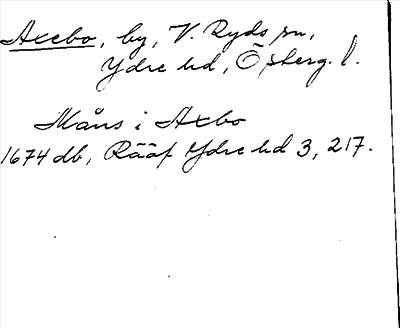 Axebo, by, V. Ryds sn,
Ydre hd, Österg. l.
Måns i Axbo
1674 db, Rääf Ydre hd 3, 217.